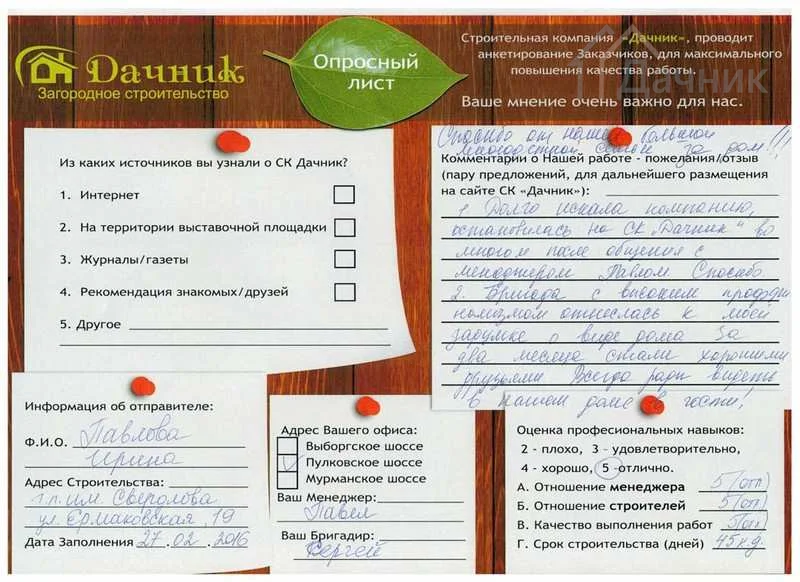 Дачник
Загородное строительство
Опросный
лист
Строительная компания «Дачник», проводит
анкетирование Заказчиков, для максимального
повышения качества работы.
Дачник
Ваше мнение очень важно для нас.
Из каких источников вы узнали о СК Дачник?
1. Интернет
2. На территории выставочной площадки
3. Журналы/газеты
4. Рекомендация знакомых/друзей
5. Другое
Спасибо от нашей большой
семьи за дом!!!
Комментарии о Нашей работе - пожелания/отзыв
(пару предложений, для дальнейшего размещения
на сайте СК «Дачник»):
1. Долго искала компанию,
остановилась на СК „Дачник" во
многом после общения с
менеджером Павлом Спасибо
2. Бригада с высоким професси
нализмом отнеслась к моей
задумке о виде дома За
два месяца стали хорошими
друзьями Всегда рады видеть
в нашем доме в гости!
Информация об отправителе:
Ф.И.О. Павлова
Ирина
Адрес Строительства:
г.п. им. Свердлова
ул. Ермаковская, 19
Дата Заполнения 27.02.2016
Адрес Вашего офиса:
Выборгское шоссе
Пулковское шоссе
Мурманское шоссе
Ваш Менеджер:
Павел
Ваш Бригадир:
Сергей
Оценка профессиональных навыков:
2 - плохо, 3 - удовлетворительно,
4 - хорошо, 5 -отлично.
А. Отношение менеджера 5 (отл)
Б. Отношение строителей 5 (отл)
В. Качество выполнения работ 5 (отл)
Г. Срок строительства (дней) 45 к.д.